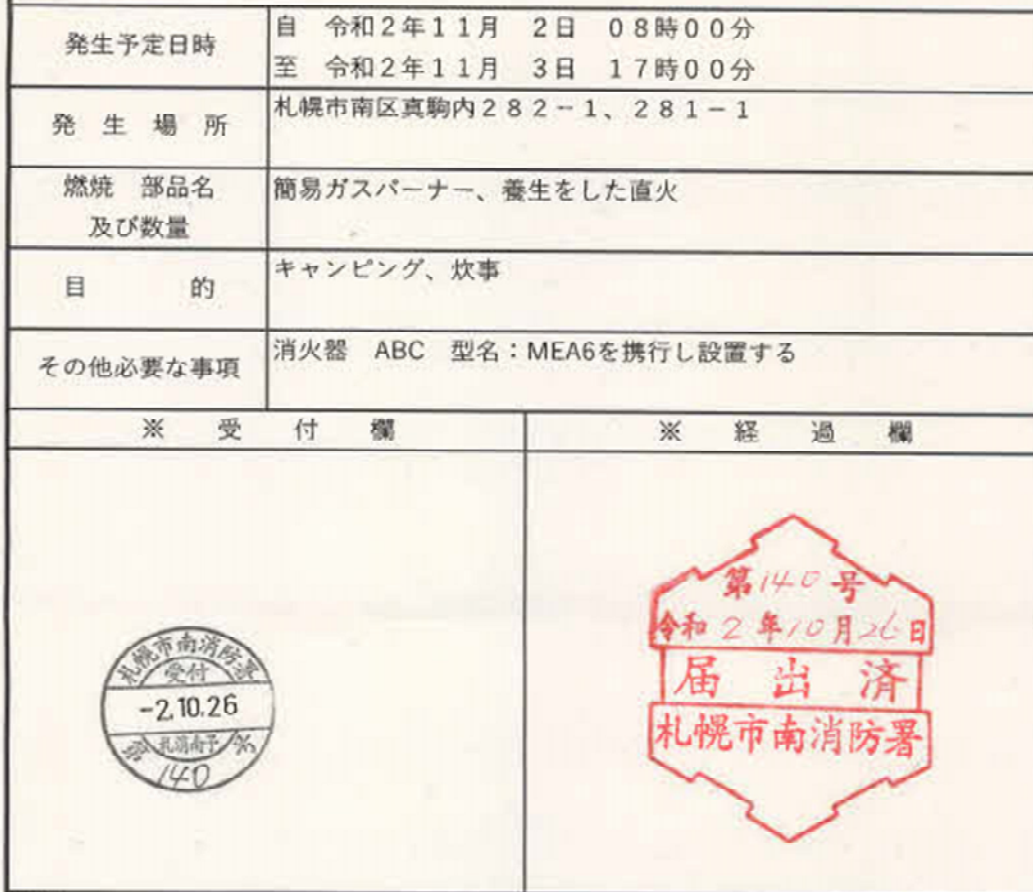 発生予定日時
自 令和2年11月 2日 08時00分
至 令和2年11月 3日 17時00分
発 生 場 所
札幌市南区真駒内282-1、281-1
燃焼 部品名
及び数量
簡易ガスバーナー、養生をした直火
目 的
キャンピング、炊事
その他必要な事項
消火器 ABC 型名:MEA6を携行し設置する
※ 受 付 欄
※ 経 過 欄
札幌市南消防署
受付
-2.10.26
札消南予
第 号
140
第140号
令和2年10月26日
届 出 済
札幌市南消防署